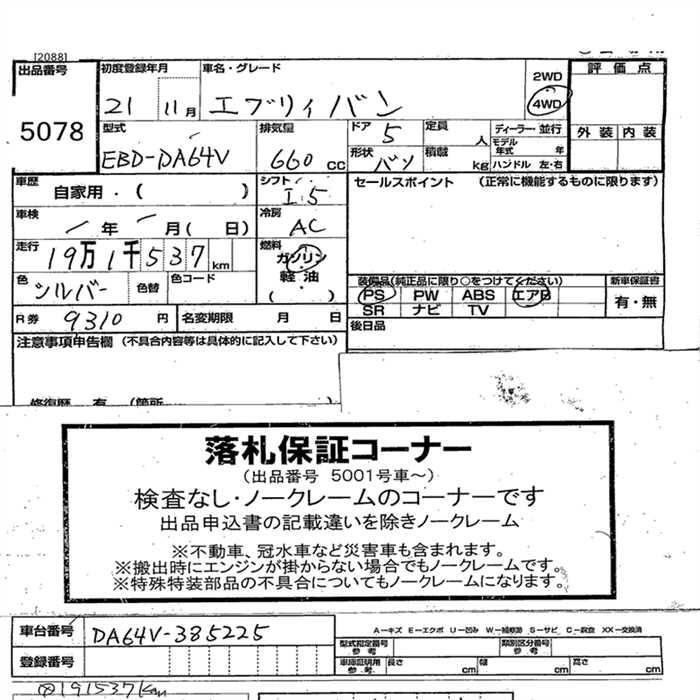 [2088]
出品番号 初度登録年月 車名・グレード 2WD 評価点
5078 21 11月 エブリィバン 4WD
型式 排気量 ドア 定員 ディーラー・並行 外装 内装
EBD-DA64V 660 CC 5 人 モデル年式 年
形状 積載 バン kg ハンドル 左・右
車歴 自家用・( ) シフト I.5 セールスポイント (正常に機能するものに限ります)
車検 年 月( 日) 冷房 AC
走行 19万1千537km 燃料 ガソリン
軽油
( )
色 シルバー 色替 色コード
装備品(純正品に限り○をつけてください) 新車保証書
PS PW ABS エアB 有・無
SR ナビ TV
R券 9310円 名変期限 月 日 後日品
注意事項申告欄 (不具合内容等は具体的に記入して下さい)
修復歴 有 (箇所
落札保証コーナー
(出品番号 5001号車~)
検査なし・ノークレームのコーナーです
出品申込書の記載違いを除きノークレーム
※不動車、冠水車など災害車も含まれます。
※搬出時にエンジンが掛からない場合でもノークレームです。
※特殊特装部品の不具合についてもノークレームになります。
車台番号 DA64V-385225
A-キズ E-エクボ U-凹み W-補修跡 S-サビ C-腐食 XX-交換済
型式指定番号 参考 類別区分番号 参考
登録番号 車庫証明用 参考 長さ cm 幅 cm 高さ cm
191537km